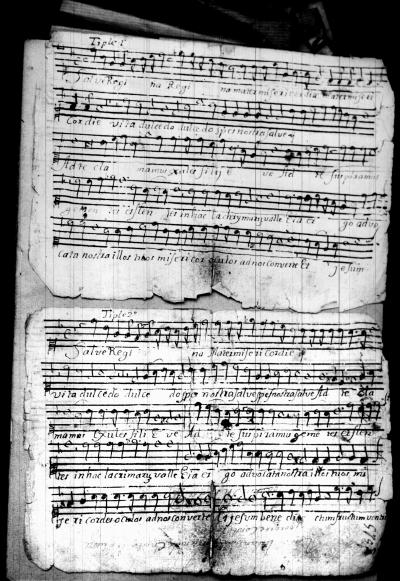 Tiple 1º
Salve Regi na Regi na mater misericordia mater miseri
Cordie vita dulcedo dulcedo spes nostra salve
Ad te cla mamus exules filij E ve Ad te suspiramus
et flen tes in hac lachrymarum valle Eia er go advo
cata nostra illos tuos misericordes oculos ad nos converte Et Jesum
Tiple 2º
Salve Regi na Mater misericordie
vita dulcedo dulce do spes nostra salve spes nostra salve Ad te cla
mamus Exules filij E ve Ad te suspiramus geme tes et flen
tes in hac lacrimarum valle Eia er go advocata nostra illos tuos mi
sericordes oculos ad nos converte Et Jesum bene dic